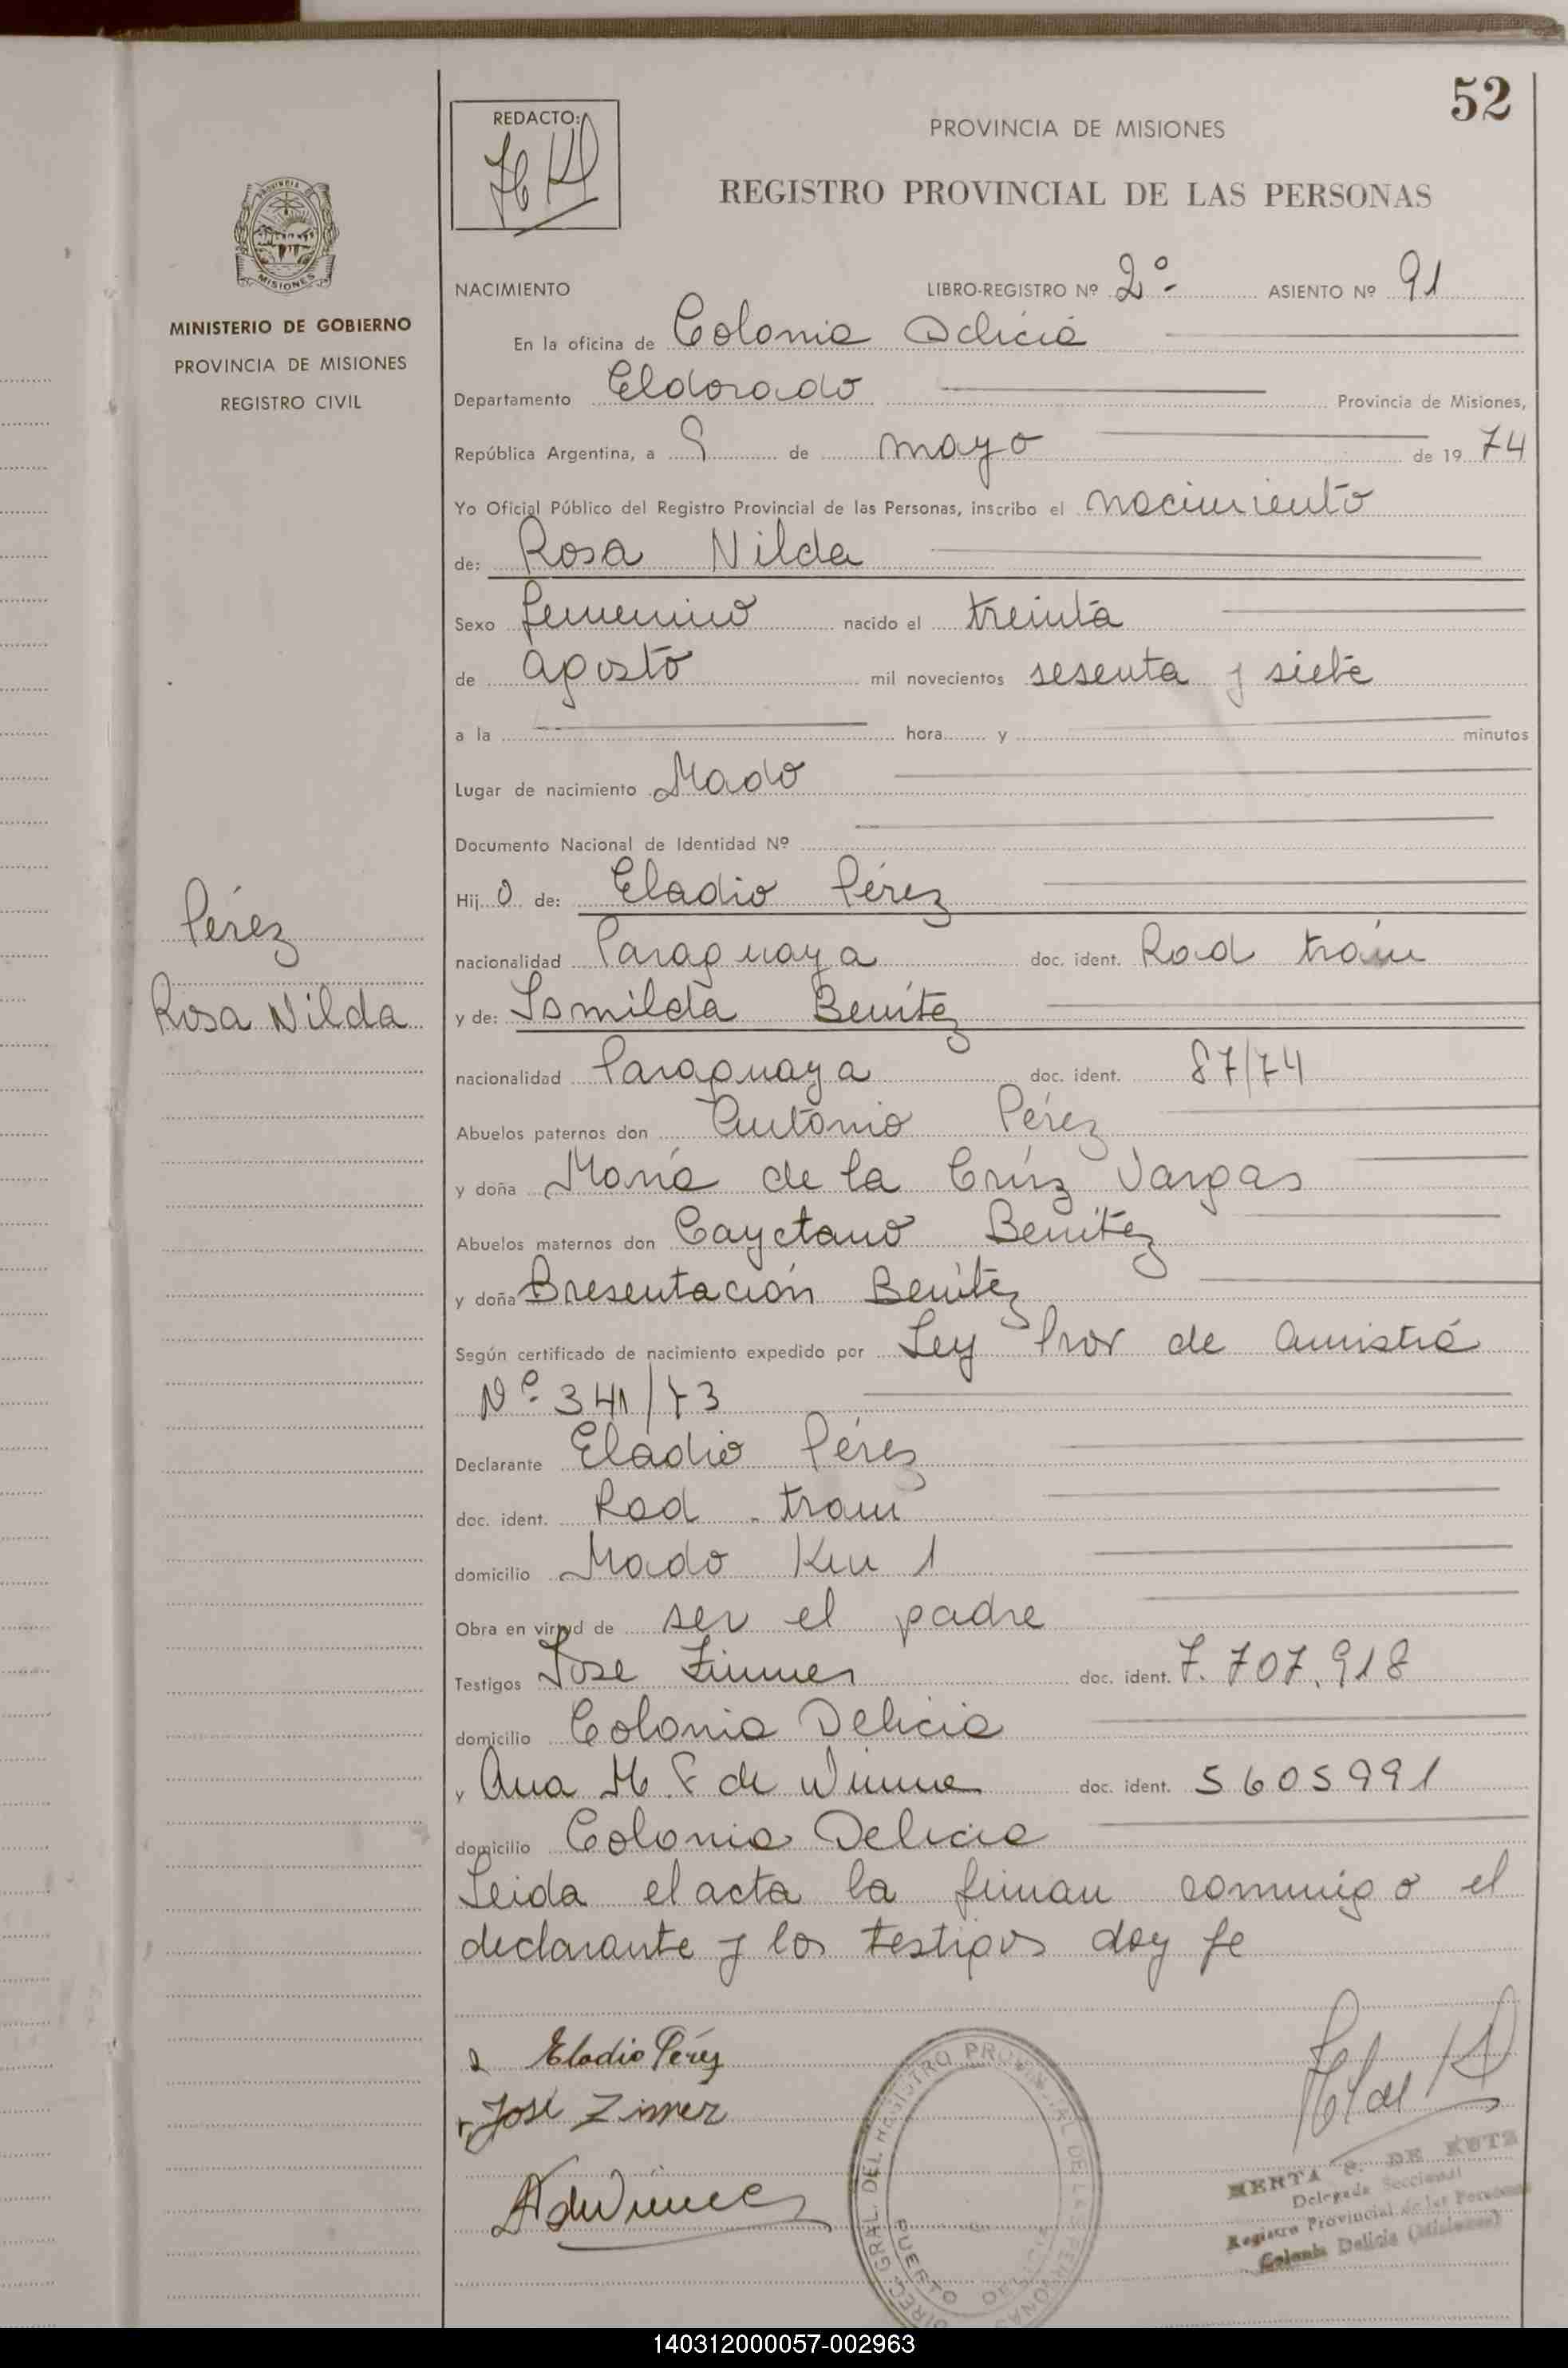 52
REDACTO:
PROVINCIA DE MISIONES
REGISTRO PROVINCIAL DE LAS PERSONAS
PROVINCIA DE
MISIONES
MINISTERIO DE GOBIERNO
PROVINCIA DE MISIONES
REGISTRO CIVIL
NACIMIENTO LIBRO-REGISTRO Nº 2º ASIENTO Nº 91
En la oficina de Colonia Delicia
Departamento Eldorado Provincia de Misiones,
República Argentina, a 9 de mayo de 19 74
Yo Oficial Público del Registro Provincial de las Personas, inscribo el nacimiento
de: Rosa Nilda
Sexo femenino nacido el treinta
de agosto mil novecientos sesenta y siete
a la hora y minutos
Lugar de nacimiento Mado
Documento Nacional de Identidad Nº
Hij o de: Eladio Pérez
nacionalidad Paraguaya doc. ident. Rad tram
Pérez
Rosa Nilda
y de: Ismilda Benítez
nacionalidad Paraguaya doc. ident. 87/74
Abuelos paternos don Antonio Pérez
y doña María de la Crúz Vargas
Abuelos maternos don Cayetano Benítez
y doña Bresentación Benítez
Según certificado de nacimiento expedido por Ley Prov de Amistiá
Nº 341/73
Declarante Eladio Pérez
doc. ident. Rad. tram
domicilio Mado Km 1
Obra en virtud de ser el padre
Testigos Jose Zimmer doc. ident. 7.707.918
domicilio Colonia Delicia
y Ana M. F de doc. ident. 5605991
domicilio Colonia Delicia
Leida el acta la firman conmigo el
declarante y los testigos doy fe
Eladio Pérez
José Zimer
DIREC. GRAL. DEL REGISTRO PROVINCIAL DE LAS PERSONAS
PUERTO
HERTA DE KUTZ
Delegada Seccional
Registro Provincial de las Personas
Colonia Delicia (Misiones)
140312000057-002963